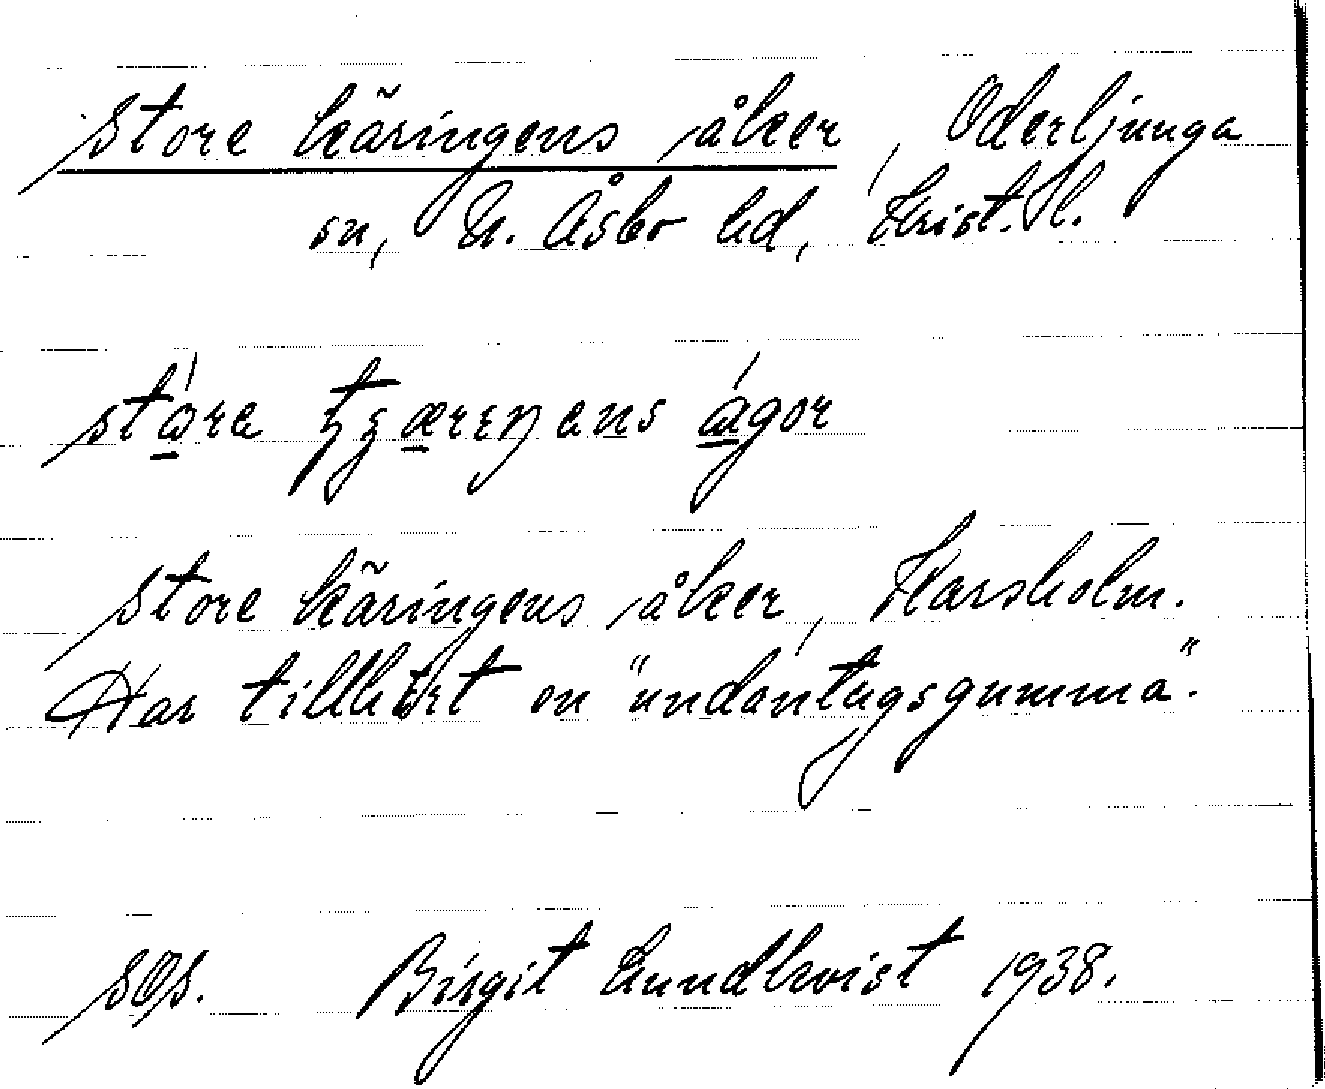 Store käringens åker, Oderljunga
sn, N. Åsbo hd, Krist. l.
störa tʒæreŋens ågor
Store käringens åker, Harsholm.
Har tillhört en "undantagsgumma".
SOS. Birgit Lundkvist 1938.